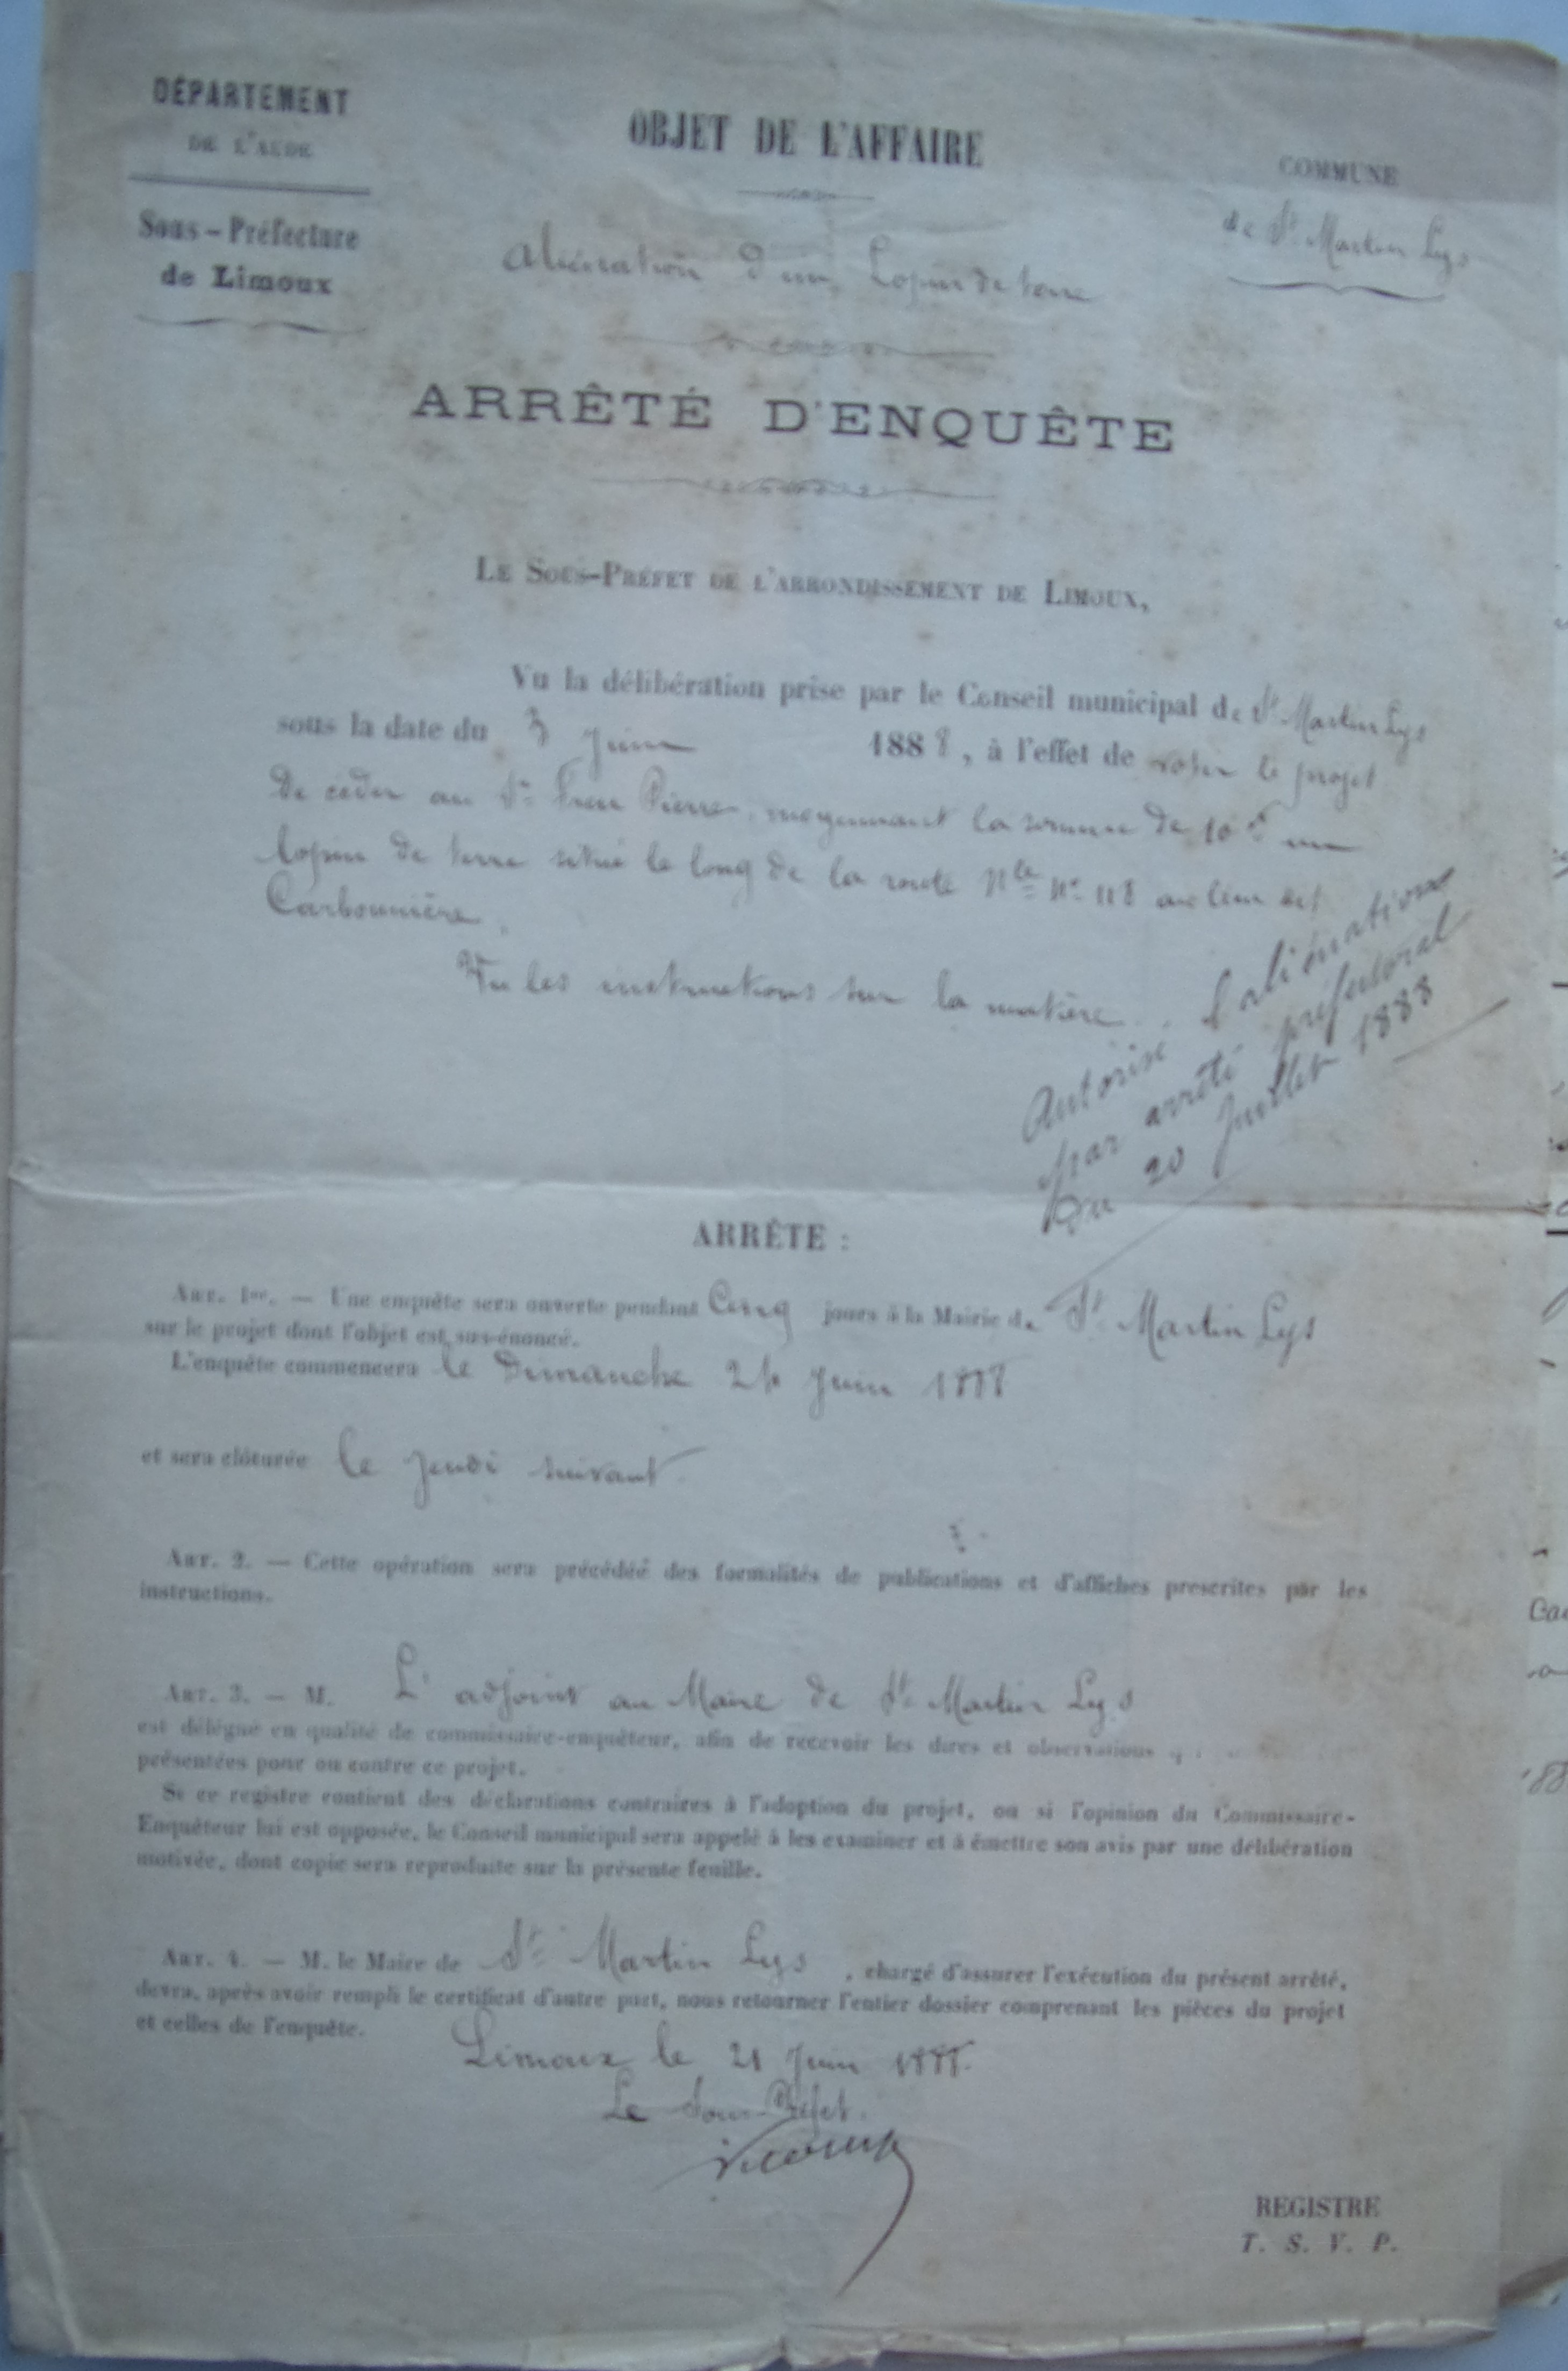 DÉPARTEMENT
DE L'AUDE
Sous-Préfecture
de Limoux
OBJET DE L'AFFAIRE
Aliénation d'un Lopin de terre
COMMUNE
de St Martin Lys
ARRÊTÉ D'ENQUÊTE
LE SOUS-PRÉFET DE L'ARRONDISSEMENT DE LIMOUX,
Vu la délibération prise par le Conseil municipal de St Martin Lys
sous la date du 3 Juin 1888, à l'effet de voter le projet
De céder au Sr Pierre, moyennant la somme de 10 f un
lopin de terre situé le long de la route Nle N° 118 au lieu dit
Carbonnière,
Vu les instructions sur la matière.
Autorisé l'aliénation
par arrêté préfectoral
Du 20 Juillet 1888
ARRÊTE :
ART. 1er. — Une enquête sera ouverte pendant Cinq jours à la Mairie de St Martin Lys
sur le projet dont l'objet est sus-énoncé.
L'enquête commencera le Dimanche 24 Juin 1888
et sera clôturée le jeudi suivant.
ART. 2. — Cette opération sera précédée des formalités de publications et d'affiches prescrites par les
instructions.
ART. 3. — M. L'adjoint au Maire de St Martin Lys
est délégué en qualité de commissaire-enquêteur, afin de recevoir les dires et observations
présentées pour ou contre ce projet.
Si ce registre contient des déclarations contraires à l'adoption du projet, ou si l'opinion du Commissaire-
Enquêteur lui est opposée, le Conseil municipal sera appelé à les examiner et à émettre son avis par une délibération
motivée, dont copie sera reproduite sur la présente feuille.
ART. 4. — M. le Maire de St Martin Lys, chargé d'assurer l'exécution du présent arrêté,
devra, après avoir rempli le certificat d'autre part, nous retourner l'entier dossier comprenant les pièces du projet
et celles de l'enquête.
Limoux le 21 Juin 1888.
Le Sous-Préfet.
REGISTRE
T. S. V. P.